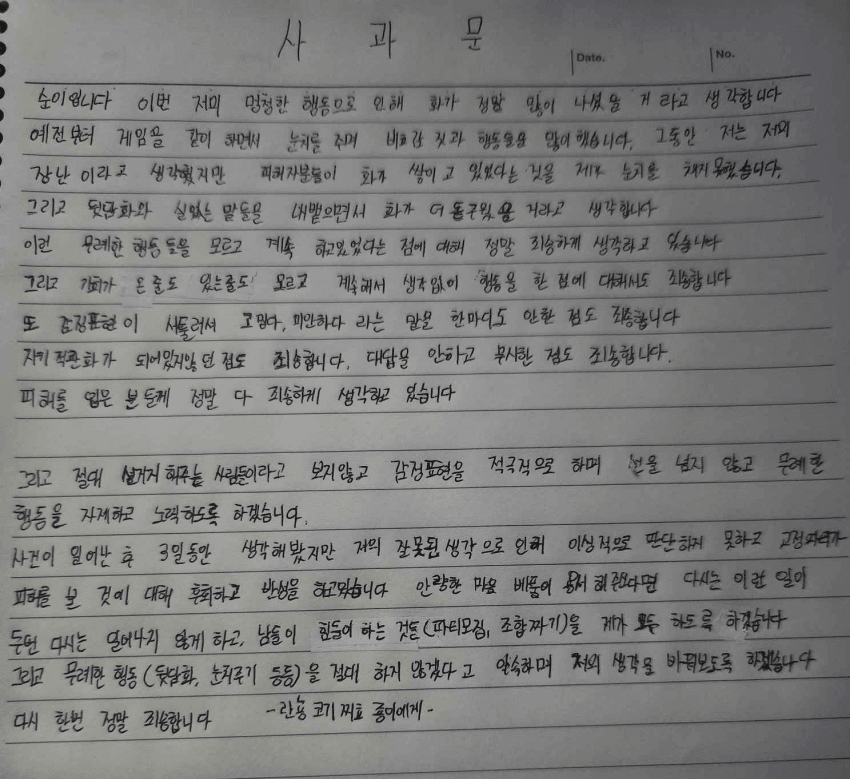 사 과 문
Date.
No.
순이입니다 이번 저의 멍청한 행동으로 인해 화가 정말 많이 나셨을 거 라고 생각합니다
예전부터 게임을 같이 하면서 눈치를 주며 비호감 짓과 행동들을 많이 했습니다. 그동안 저는 저의
장난이라고 생각했지만 피해자분들이 화가 쌓이고 있었다는 것을 제가 눈치를 채지 못했습니다.
그리고 뒷담화와 실없는 말들을 내뱉으면서 화가 더 돋구웠을 거라고 생각합니다
이런 무례한 행동들을 모르고 계속 하고있었다는 점에 대해 정말 죄송하게 생각하고 있습니다
그리고 기회가 온줄도 있는줄도 모르고 계속해서 생각없이 행동을 한 점에 대해서도 죄송합니다
또 감정표현이 서툴러서 고맙다, 미안하다 라는 말을 한마디도 안한 점도 죄송합니다
자기 객관화가 되어있지않던 점도 죄송합니다. 대답을 안하고 무시한 점도 죄송합니다.
피해를 입은 분들께 정말 다 죄송하게 생각하고 있습니다
그리고 절대 설거지 해주는 사람들이라고 보지않고 감정표현을 적극적으로 하며 선을 넘지 않고 무례한
행동을 자제하고 노력하도록 하겠습니다.
사건이 일어난 후 3일동안 생각해봤지만 저의 잘못된 생각으로 인해 이상적으로 판단하지 못하고 고정파티가
피해를 본 것에 대해 후회하고 반성을 하고있습니다 안량한 마음 베풀어 용서 해주신다면 다시는 이런 일이
두번 다시는 일어나지 않게 하고, 남들이 힘들어 하는 것들(파티모집, 조합짜기)을 제가 모두 하도록 하겠습니다
그리고 무례한 행동(뒷담화, 눈치주기 등등)을 절대 하지 않겠다고 약속하며 저의 생각을 바꿔보도록 하겠습니다
다시 한번 정말 죄송합니다 -란뇽 코기 찌효 룡이에게-